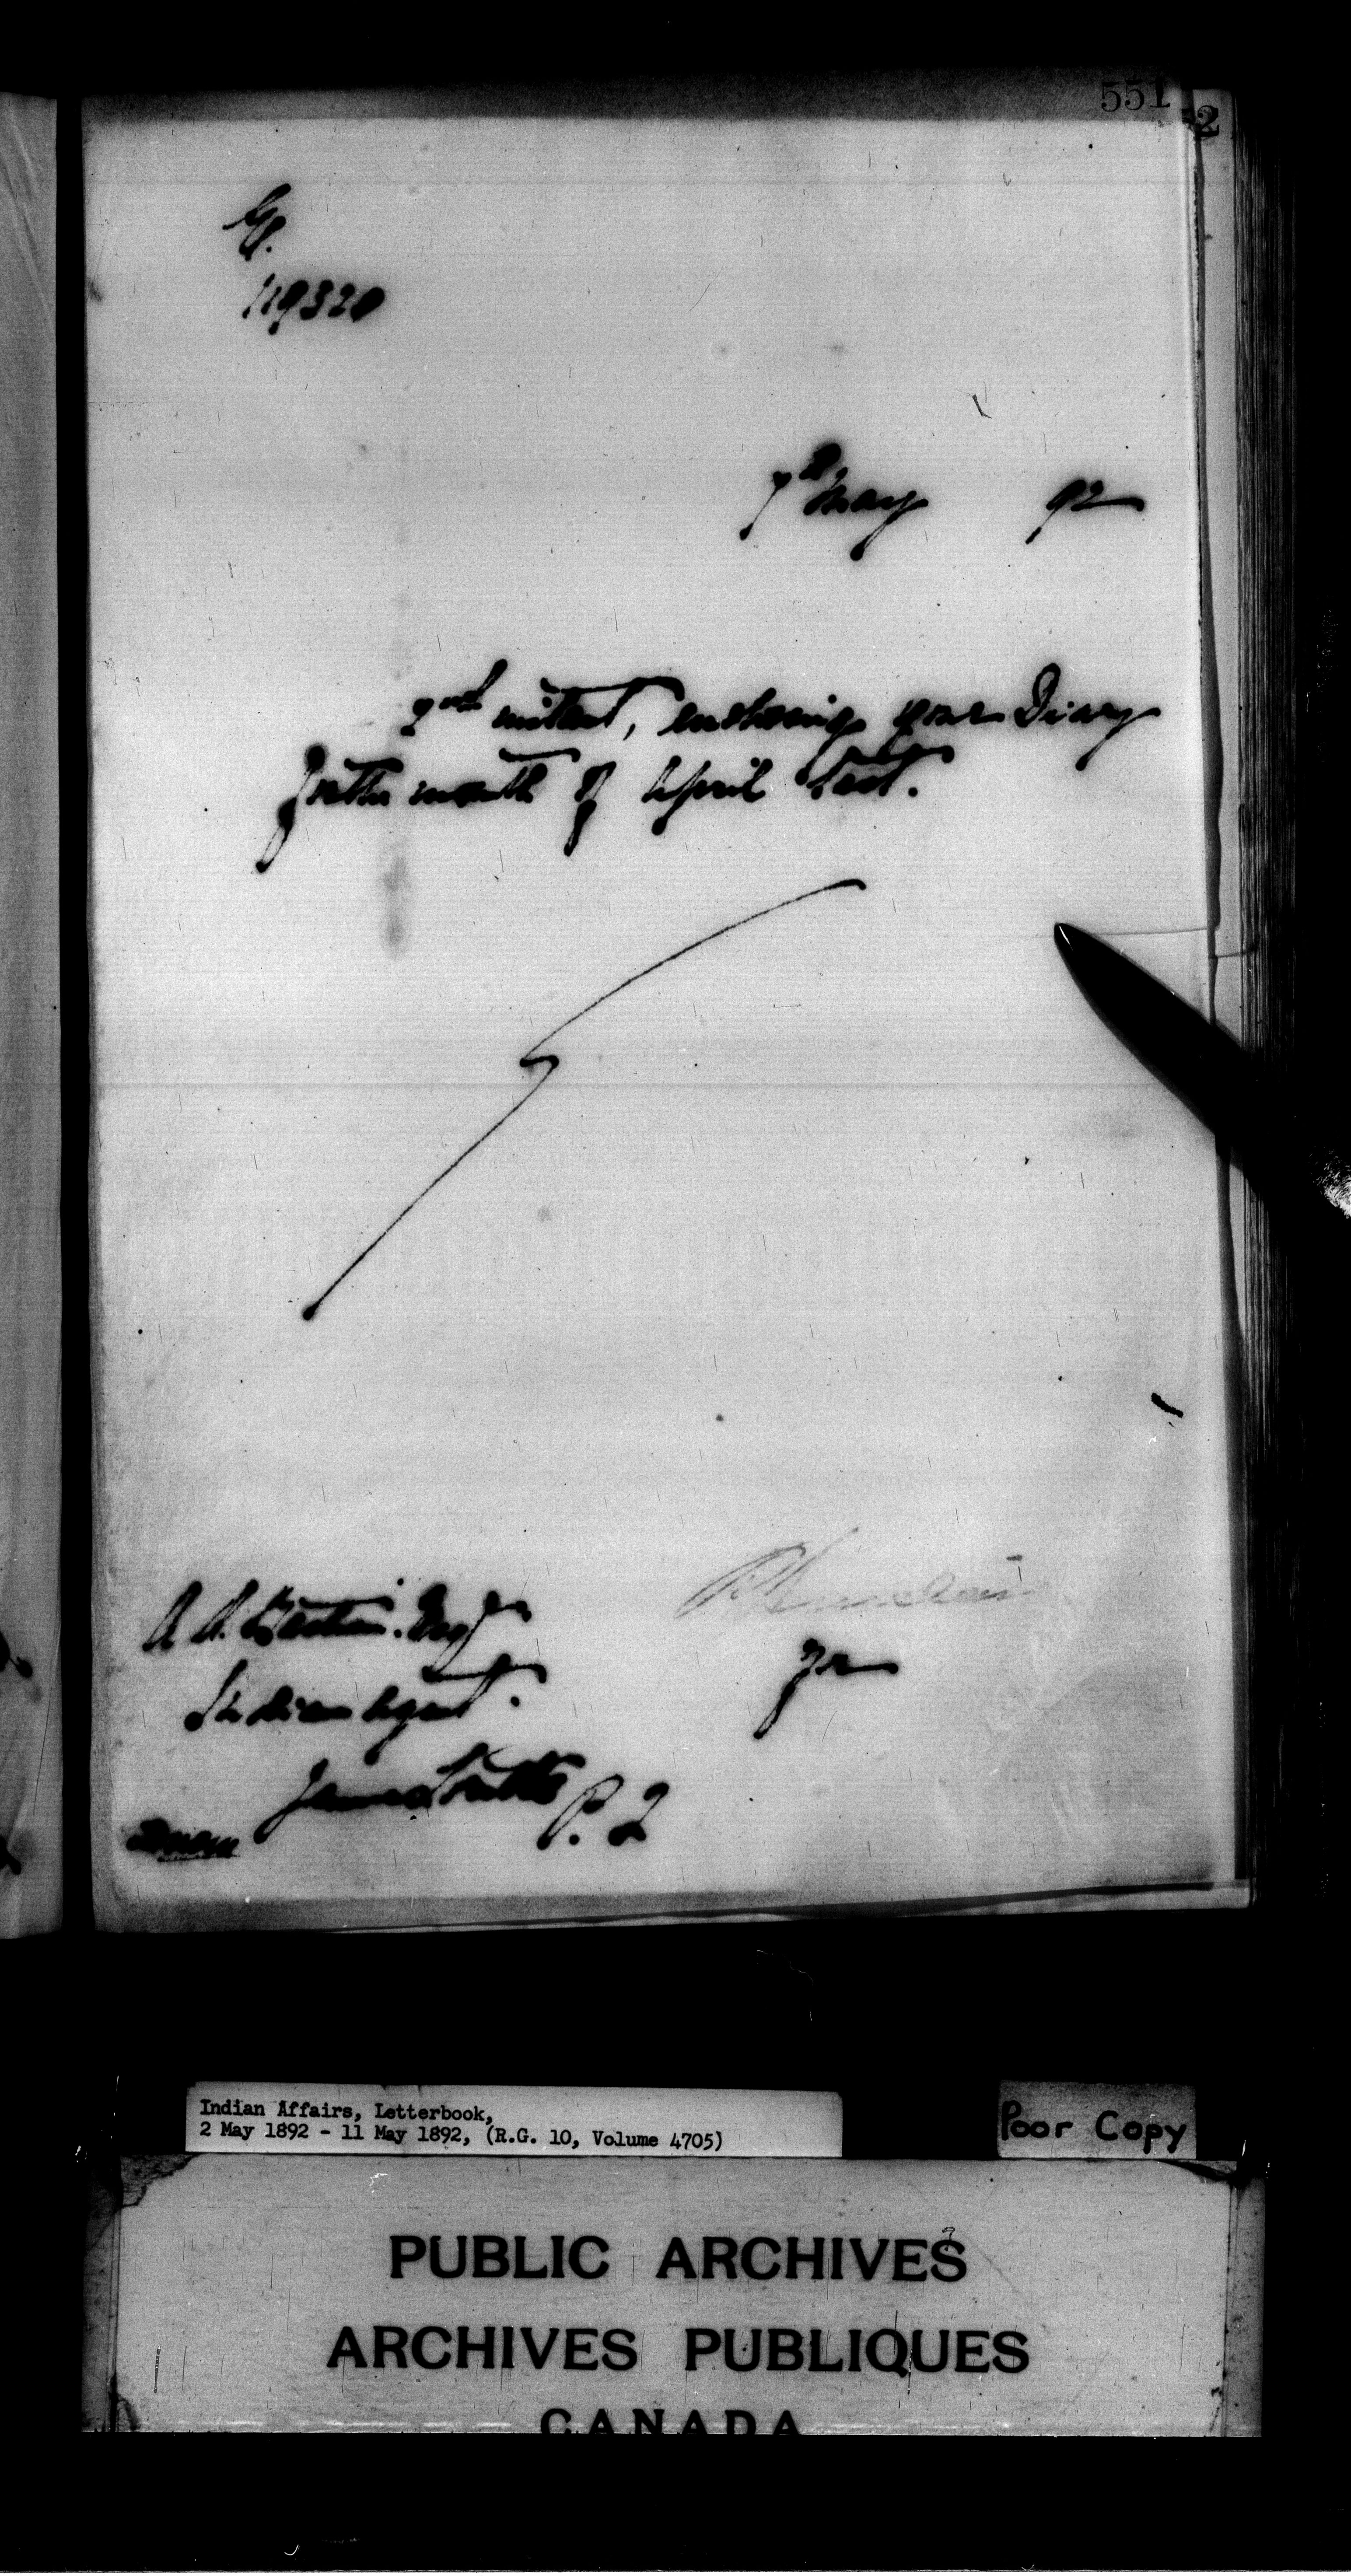 551
2
119320
7th May 92
2nd instant, enclosing your Diary
for the month of April last.
Esqr
Indian Agent.
for
P. Q
Indian Affairs, Letterbook,
2 May 1892 - 11 May 1892, (R.G. 10, Volume 4705)
Poor Copy
PUBLIC ARCHIVES
ARCHIVES PUBLIQUES
CANADA